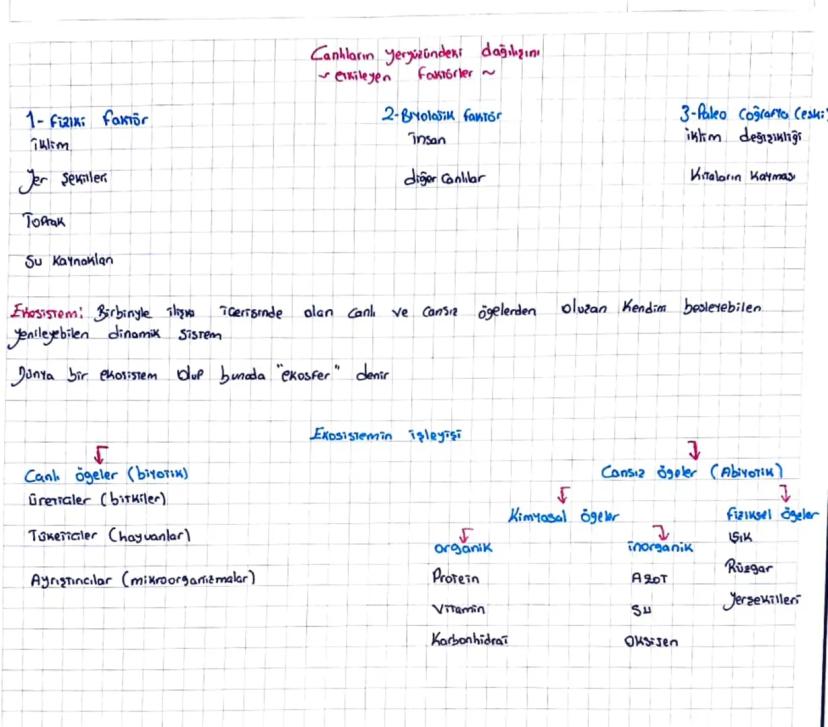 Canlıların yeryüzündeki dağılışını
~ etkileyen faktörler ~
1- Fiziki faktör
iklim
Yer Şekilleri
Toprak
Su Kaynakları
2-Biyolojik faktör
insan
diğer canlılar
3-Paleo Coğrafya (eski
iklim değişikliği
Kıtaların Kayması
Ekosistem: Birbiriyle ilişki içerisinde olan canlı ve cansız ögelerden oluşan Kendini besleyebilen
yenileyebilen dinamik sistem
Dünya bir ekosistem olup bunada "ekosfer" denir
Ekosistemin işleyişi
Canlı ögeler (biyotik)
üreticiler (bitkiler)
Tüketiciler (hayvanlar)
Ayrıştırıcılar (mikroorganizmalar)
Cansız ögeler (Abiyotik)
Kimyasal ögeler
organik
Protein
Vitamin
Karbonhidrat
inorganik
Azot
Su
Oksijen
fiziksel ögeler
ışık
Rüzgar
Yerşekilleri